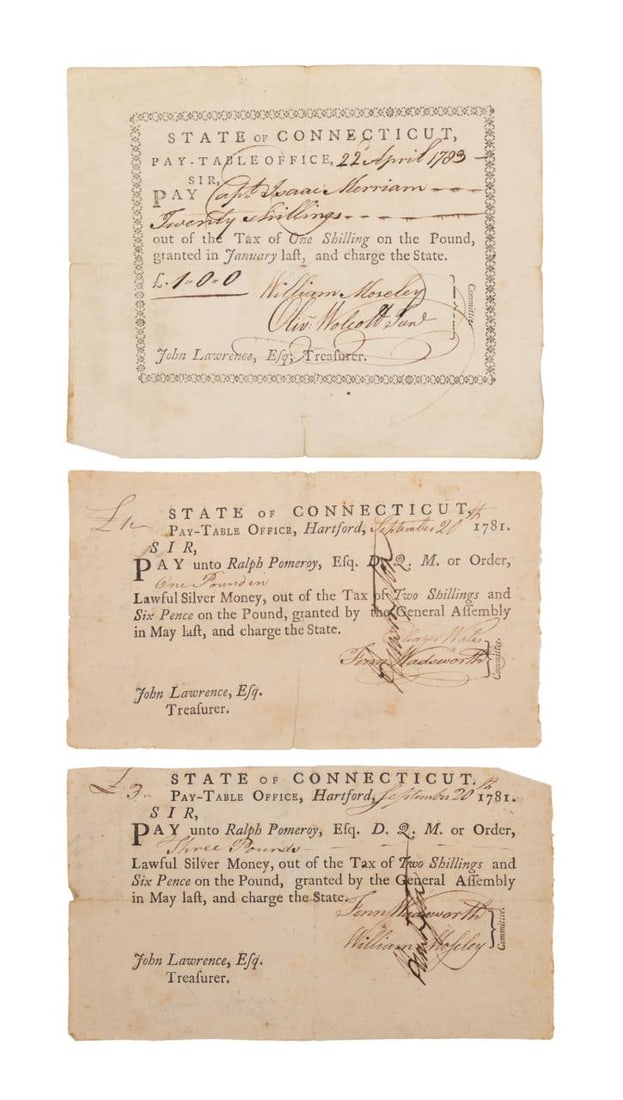 STATE OF CONNECTICUT,
PAY-TABLE OFFICE, 22d April 1783
SIR,
PAY Capt Isaac Merriam
Twenty Shillings
out of the Tax of One Shilling on the Pound,
granted in January laſt, and charge the State.
£ 1" 0" 0
William Moseley
Oliv. Wolcott Junr
Committee.
John Lawrence, Eſq; Treaſurer.
£1
STATE OF CONNECTICUT,
PAY-TABLE OFFICE, Hartford, September 20th 1781.
SIR,
PAY unto Ralph Pomeroy, Eſq. D. Q. M. or Order,
One Pound in
Lawful Silver Money, out of the Tax of Two Shillings and
Six Pence on the Pound, granted by the General Aſſembly
in May laſt, and charge the State.
Wales
Fenn Wadsworth
Committee.
John Lawrence, Eſq.
Treaſurer.
£3
STATE OF CONNECTICUT,
PAY-TABLE OFFICE, Hartford, September 20th 1781.
SIR,
PAY unto Ralph Pomeroy, Eſq. D. Q. M. or Order,
Three Pounds
Lawful Silver Money, out of the Tax of Two Shillings and
Six Pence on the Pound, granted by the General Aſſembly
in May laſt, and charge the State.
Fenn Wadsworth
William Moseley
Committee.
John Lawrence, Eſq.
Treaſurer.